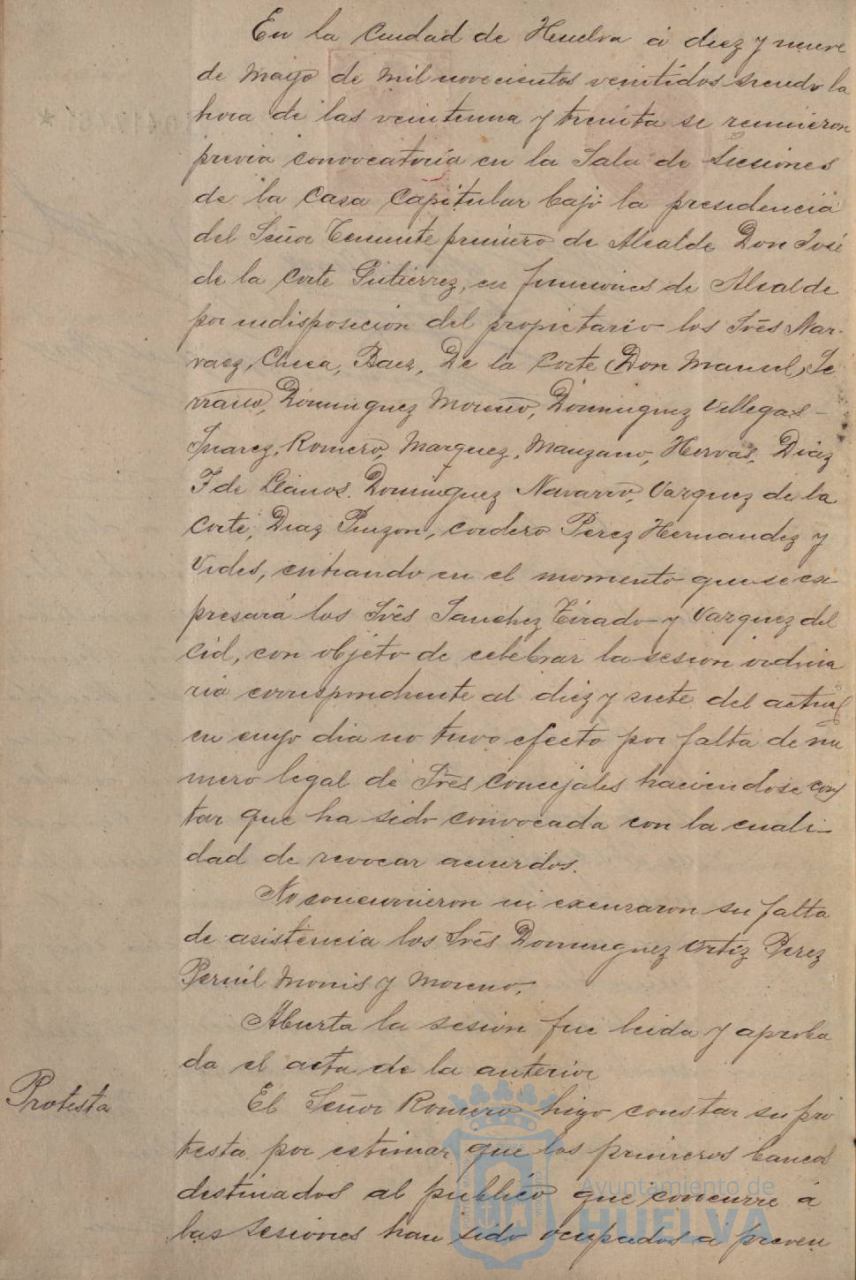 En la Ciudad de Huelva á diez y nueve
de Mayo de mil novecientos veintidos siendo la
hora de las veintenua y treinta se reunieron
previa convocatoria en la Sala de Sesiones
de la Casa Capitular bajo la presidencia
del Señor Teniente primero de Alcalde Don José
de la Corte Gutierrez, en funciones de Alcalde
por indisposición del propietario los Srēs Nar-
vaez, Checa, Baez, De la Corte Don Manuel, Se
rrano, Dominguez Moreno, Dominguez Villegas-
Juarez, Romero, Marquez, Manzano, Hervas, Diaz
F de Llanos. Dominguez Navarro, Vazquez de la
Corte, Diaz Pinzon, Cordero Perez Hernandez y
Vides, entrando en el momento que se ex-
presará los Srēs Sanchez Tirado y Vazquez del
Cid, con objeto de celebrar la sesion ordina
ria correspondiente al diez y siete del actual
en cuyo dia no tuvo efecto por falta de nu
mero legal de Srēs Concejales haciendose cons
tar que ha sido convocada con la cuali-
dad de revocar acuerdos.
No concurrieron ni excusaron su falta
de asistencia los Srēs Dominguez Ortiz Perez
Monis y Moreno.
Abierta la sesion fue leida y aproba
da el acta de la anterior
Protesta
El Señor Romero hizo constar su pro
testa por estimar que los primeros bancos
destinados al publico que concurre á
las sesiones han sido ocupados á preven
Ayuntamiento de
HUELVA